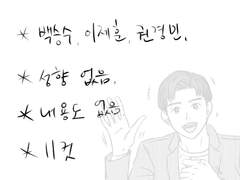 * 백승수, 이제훈, 권경민.
* 성향 없음.
* 내용도 없음
* 11컷